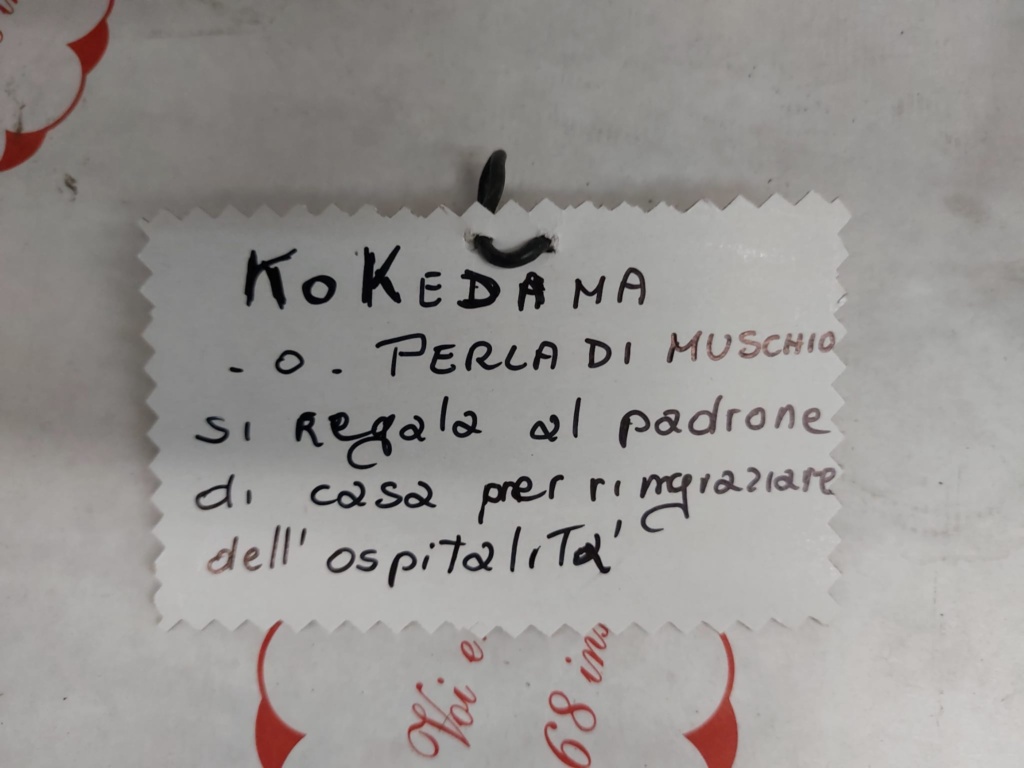 KOKEDAMA
. o . PERLA DI MUSCHIO
si Regala al padrone
di casa per ringraziare
dell' ospitalità'
Voi e
68 ins